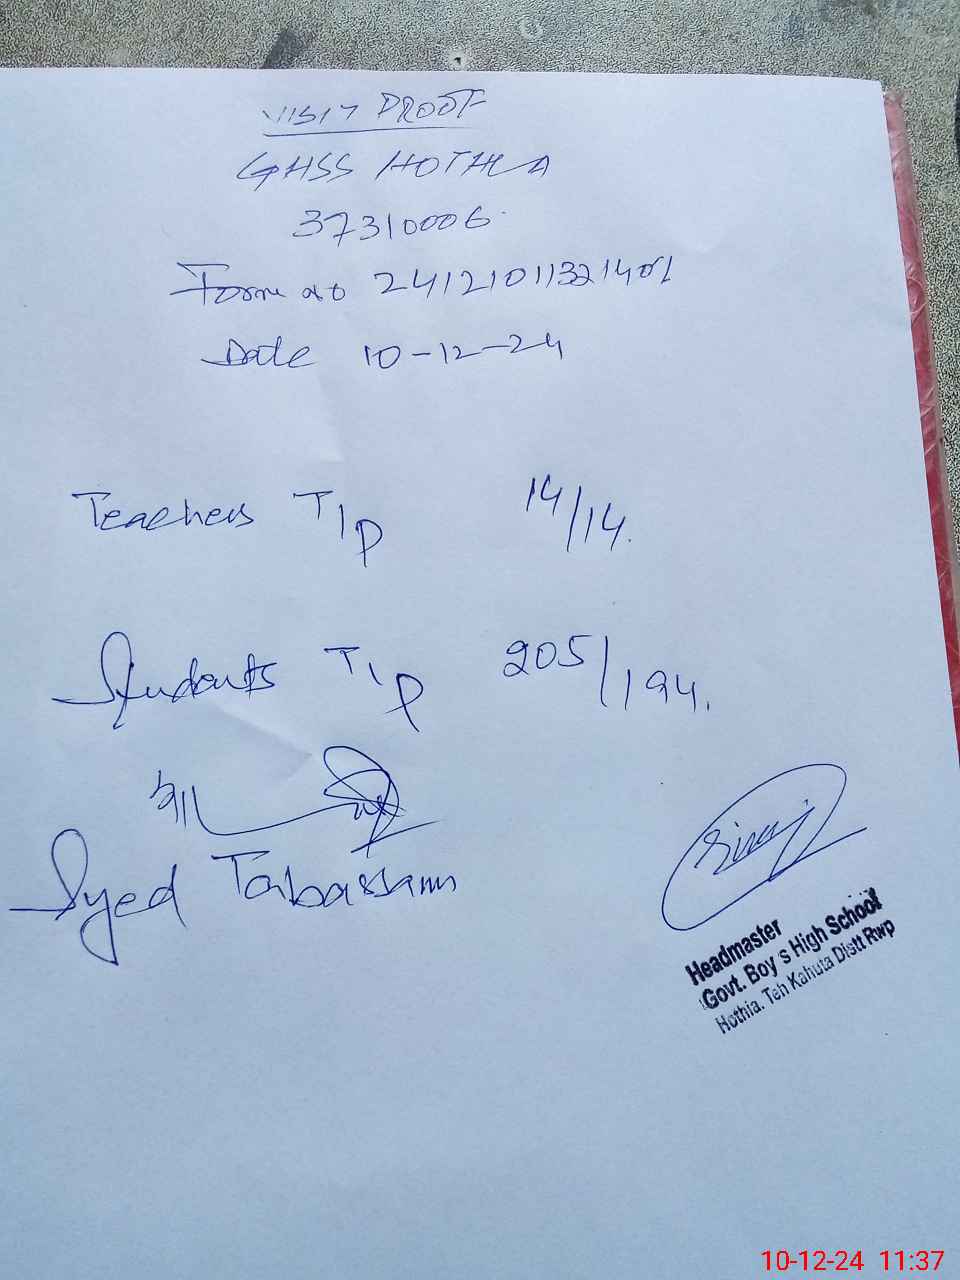 VISIT PROOF
GHSS HOTHLA
37310006.
Form no 24121011321401
Date 10-12-24
Teachers T/P 14/14.
Students T/P 205/194.
Syed Tabassam
Headmaster
Govt. Boy s High School
Hothia. Teh Kahuta Distt Rwp
10-12-24 11:37